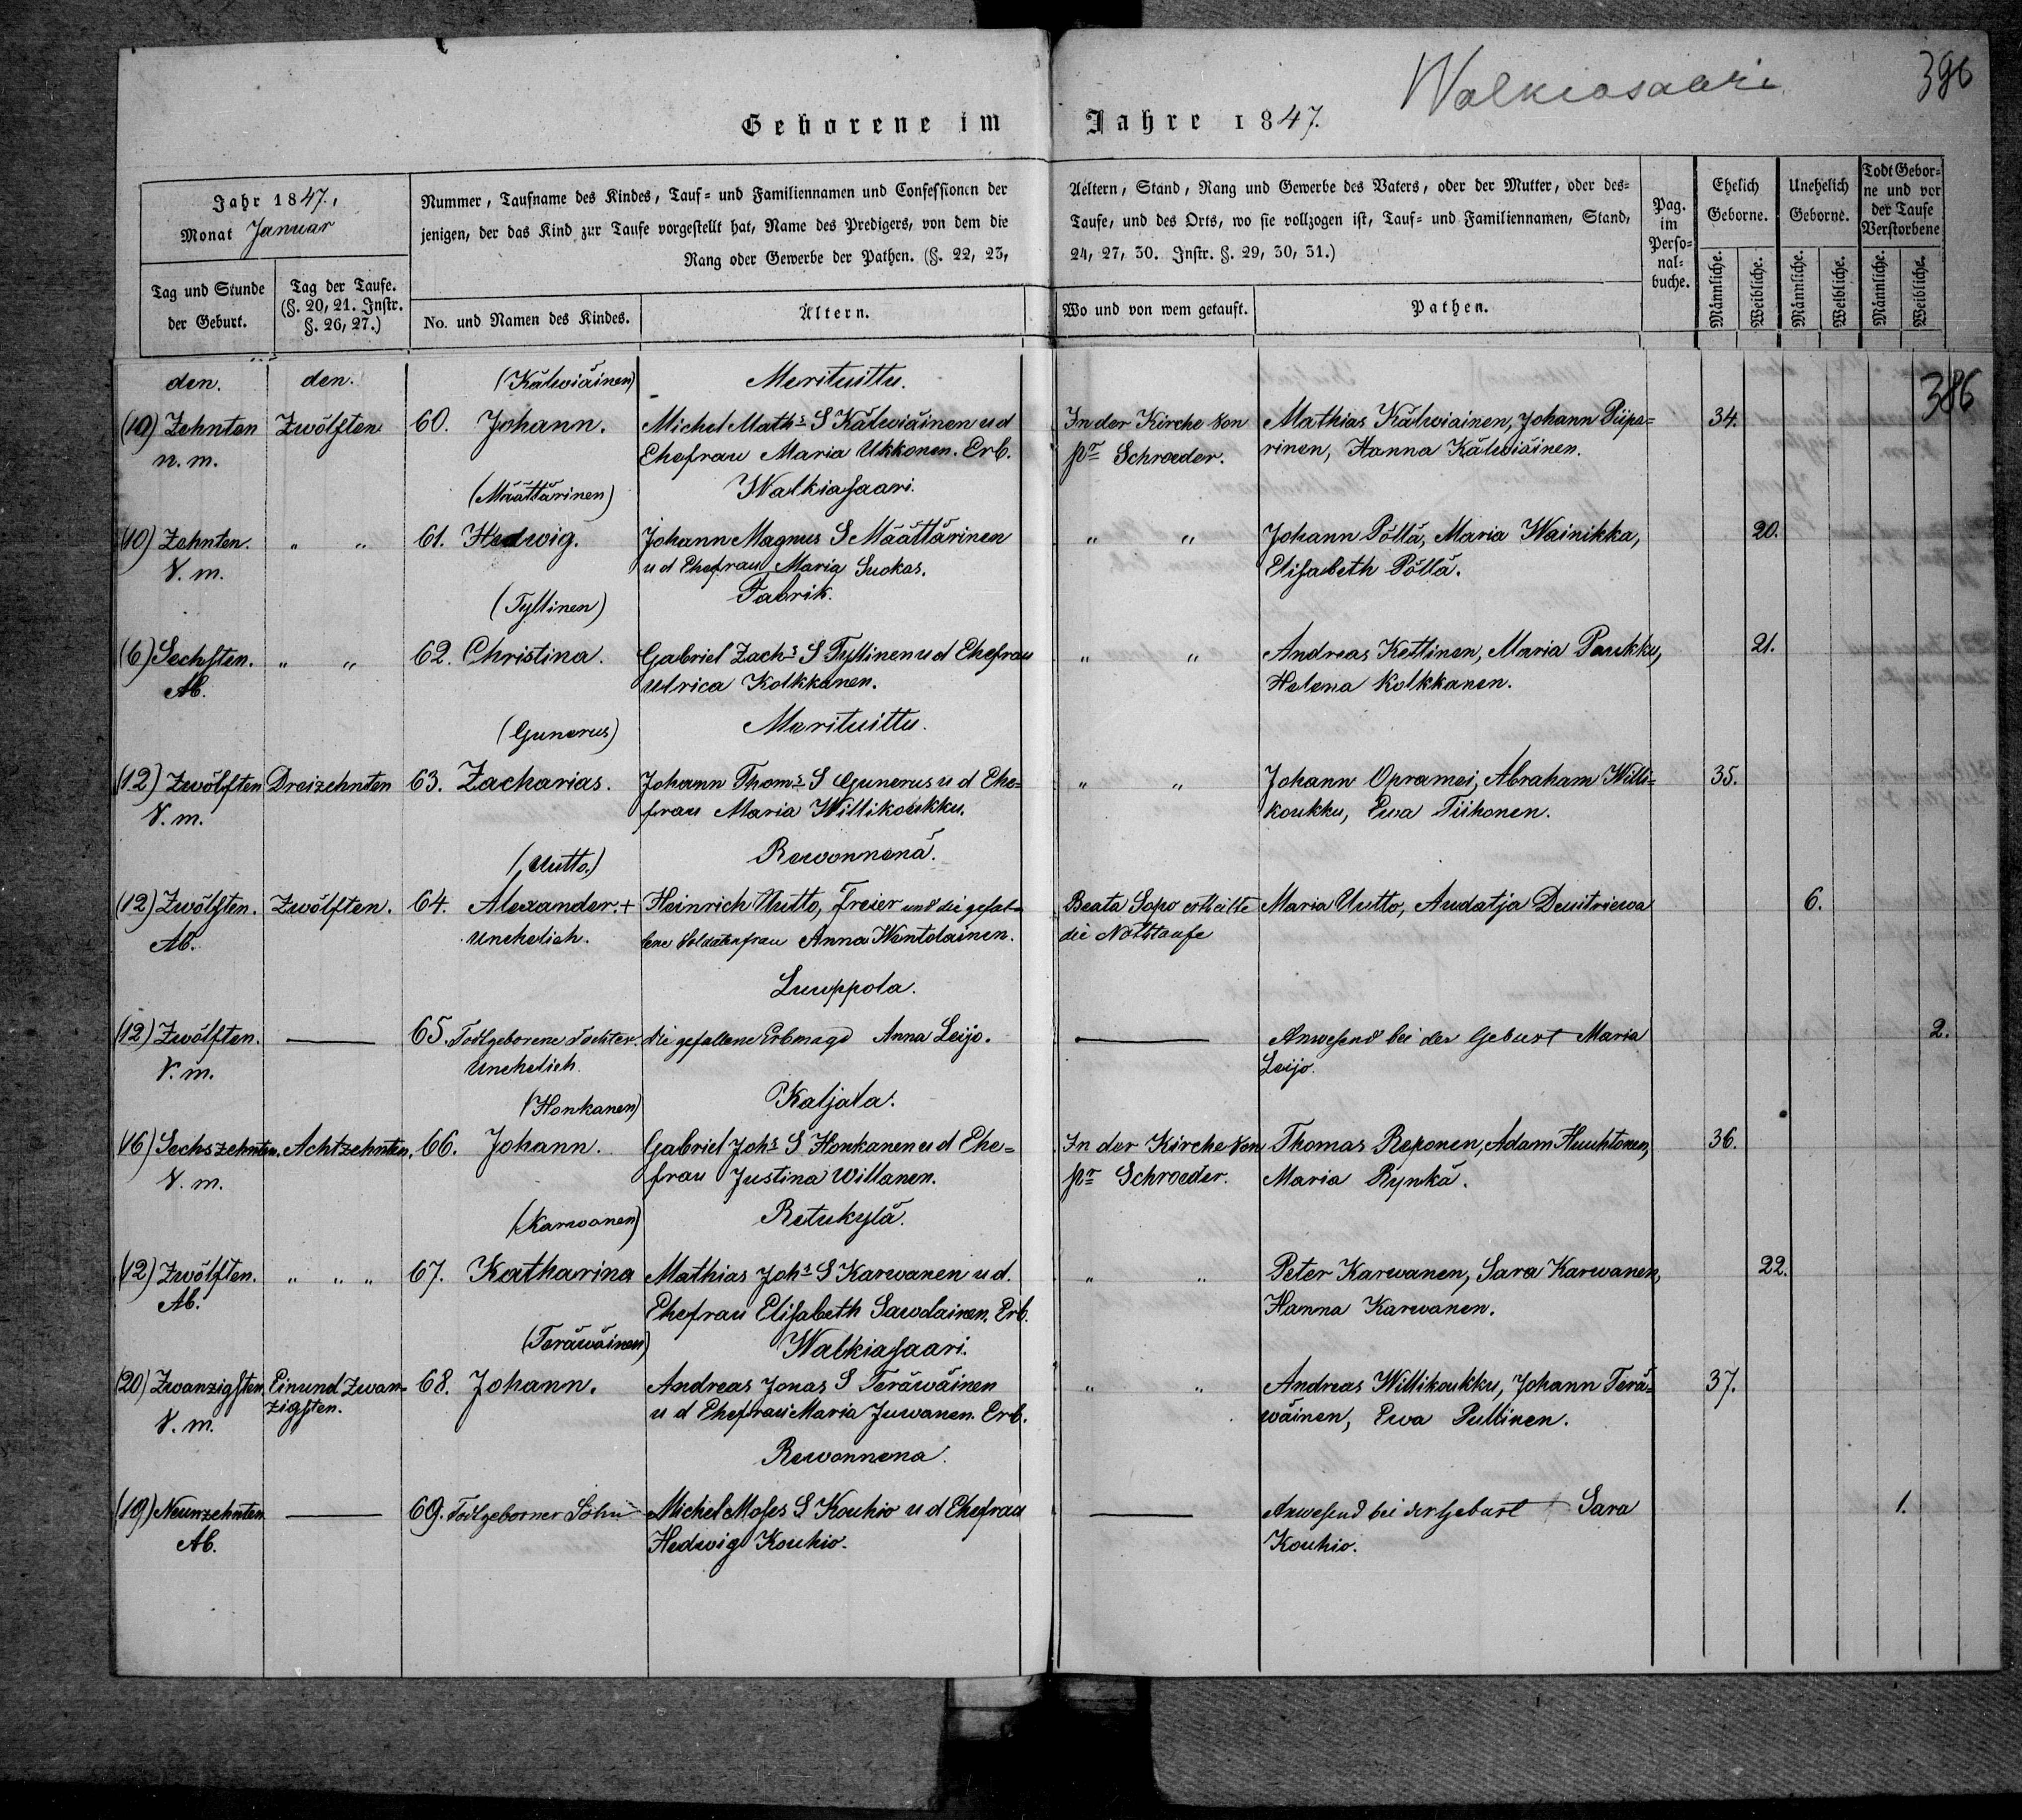 Walkeasaari
396
Geborene im Jahre 1847.
Jahr 1847.,
Monat Januar
Nummer, Taufname des Kindes, Tauf- und Familiennamen und Confessionen der
jenigen, der das Kind zur Taufe vorgestellt hat, Name des Predigers, von dem die
Rang oder Gewerbe der Pathen. (§. 22, 23,
Aeltern, Stand, Rang und Gewerbe des Vaters, oder der Mutter, oder des-
Taufe, und des Orts, wo sie vollzogen ist, Tauf- und Familiennamen, Stand,
24, 27, 30. Instr. §. 29, 30, 31.)
Pag. im Perso-nal-buche.
Ehelich Geborne.
Unehelich Geborne.
Todt Gebor-ne und vor der Taufe Verstorbene
Tag und Stunde der Geburt.
Tag der Taufe. (§. 20, 21. Instr. §. 26, 27.)
No. und Namen des Kindes.
Ältern.
Wo und von wem getauft.
Pathen.
Männliche. Weibliche. Männliche. Weibliche. Männliche. Weibliche.
386
den. den. (Kälwiäinen) Merituittu.
(10) Zehnten Zwölften 60. Johann. Michel Maths S Kälwiäinen u d In der Kirche von Mathias Kälwiainen, Johann Piipa= 34.
n. m. Ehefrau Maria Ukkonen. Erb. pr Schroeder. rinen, Hanna Kälwiäinen.
(Määttärinen) Walkiasaari.
(10) Zehnten. " " 61. Hedwig. Johann Magnus S Määttärinen " " Johann Pöllä, Maria Wainikka, 20.
V. m. u d Ehefrau Maria Suokas. Elisabeth Pöllä.
(Tyllinen) Fabrik.
(6) Sechsten. " " 62. Christina. Gabriel Zachs S Tyllinen u d Ehefrau " " Andreas Kettinen, Maria Paukku, 21.
Ab. Ulrica Kolkkanen. Helena Kolkkanen.
(Gunerus) Merituittu.
(12) Zwölften Dreizehnten 63. Zacharias. Johann Thoms S Gunerus u d Ehe= " " Johann Opramei, Abraham Willi= 35.
V. m. frau Maria Willikoukku. koukku, Ewa Tiihonen.
(Uutto.) Rewonnenä.
(12) Zwölften. Zwölften. 64. Alexander. + Heinrich Uutto, Freier und die gefal= Beata Sopo ertheilte Maria Uutto, Audatja Demitriewa 6.
Ab. Unehelich. lene Soldatenfrau Anna Wentelainen. die Nothtaufe
Luuppola.
(12) Zwölften. — 65. Todtgeborene Tochter. Die gefallene Erbmagd Anna Leijo. — Anwesend bei der Geburt Maria 2.
V. m. Unehelich. Leijo.
(Honkanen) Kaljala.
(16) Sechszehnten. Achtzehnten. 66. Johann. Gabriel Johs S Honkanen u d Ehe= In der Kirche von Thomas Reponen, Adam Huuhtonen, 36.
V. m. frau Justina Willanen. pr Schroeder. Maria Rynkä.
(Karwanen) Retukylä.
(12) Zwölften. " " " 67. Katharina Mathias Johs S Karwanen u d. " " Peter Karwanen, Sara Karwanen, 22.
Ab. Ehefrau Elisabeth Sawolainen. Erb. Hanna Karwanen.
(Teräwäinen) Walkiasaari.
(20) Zwanzigsten. Einund Zwan= 68. Johann. Andreas Jonas S Teräwäinen " " Andreas Willikoukku, Johann Terä= 37.
V. m. zigsten. u d Ehefrau Maria Juwanen. Erb. wäinen, Ewa Pullinen.
Rewonnena.
(19) Neunzehnten — 69. Todtgeborner Sohn Michel Moses S Kouhio u d Ehefrau — Anwesend bei der Geburt Sara 1.
Ab. Hedwig Kouhio. Kouhio.